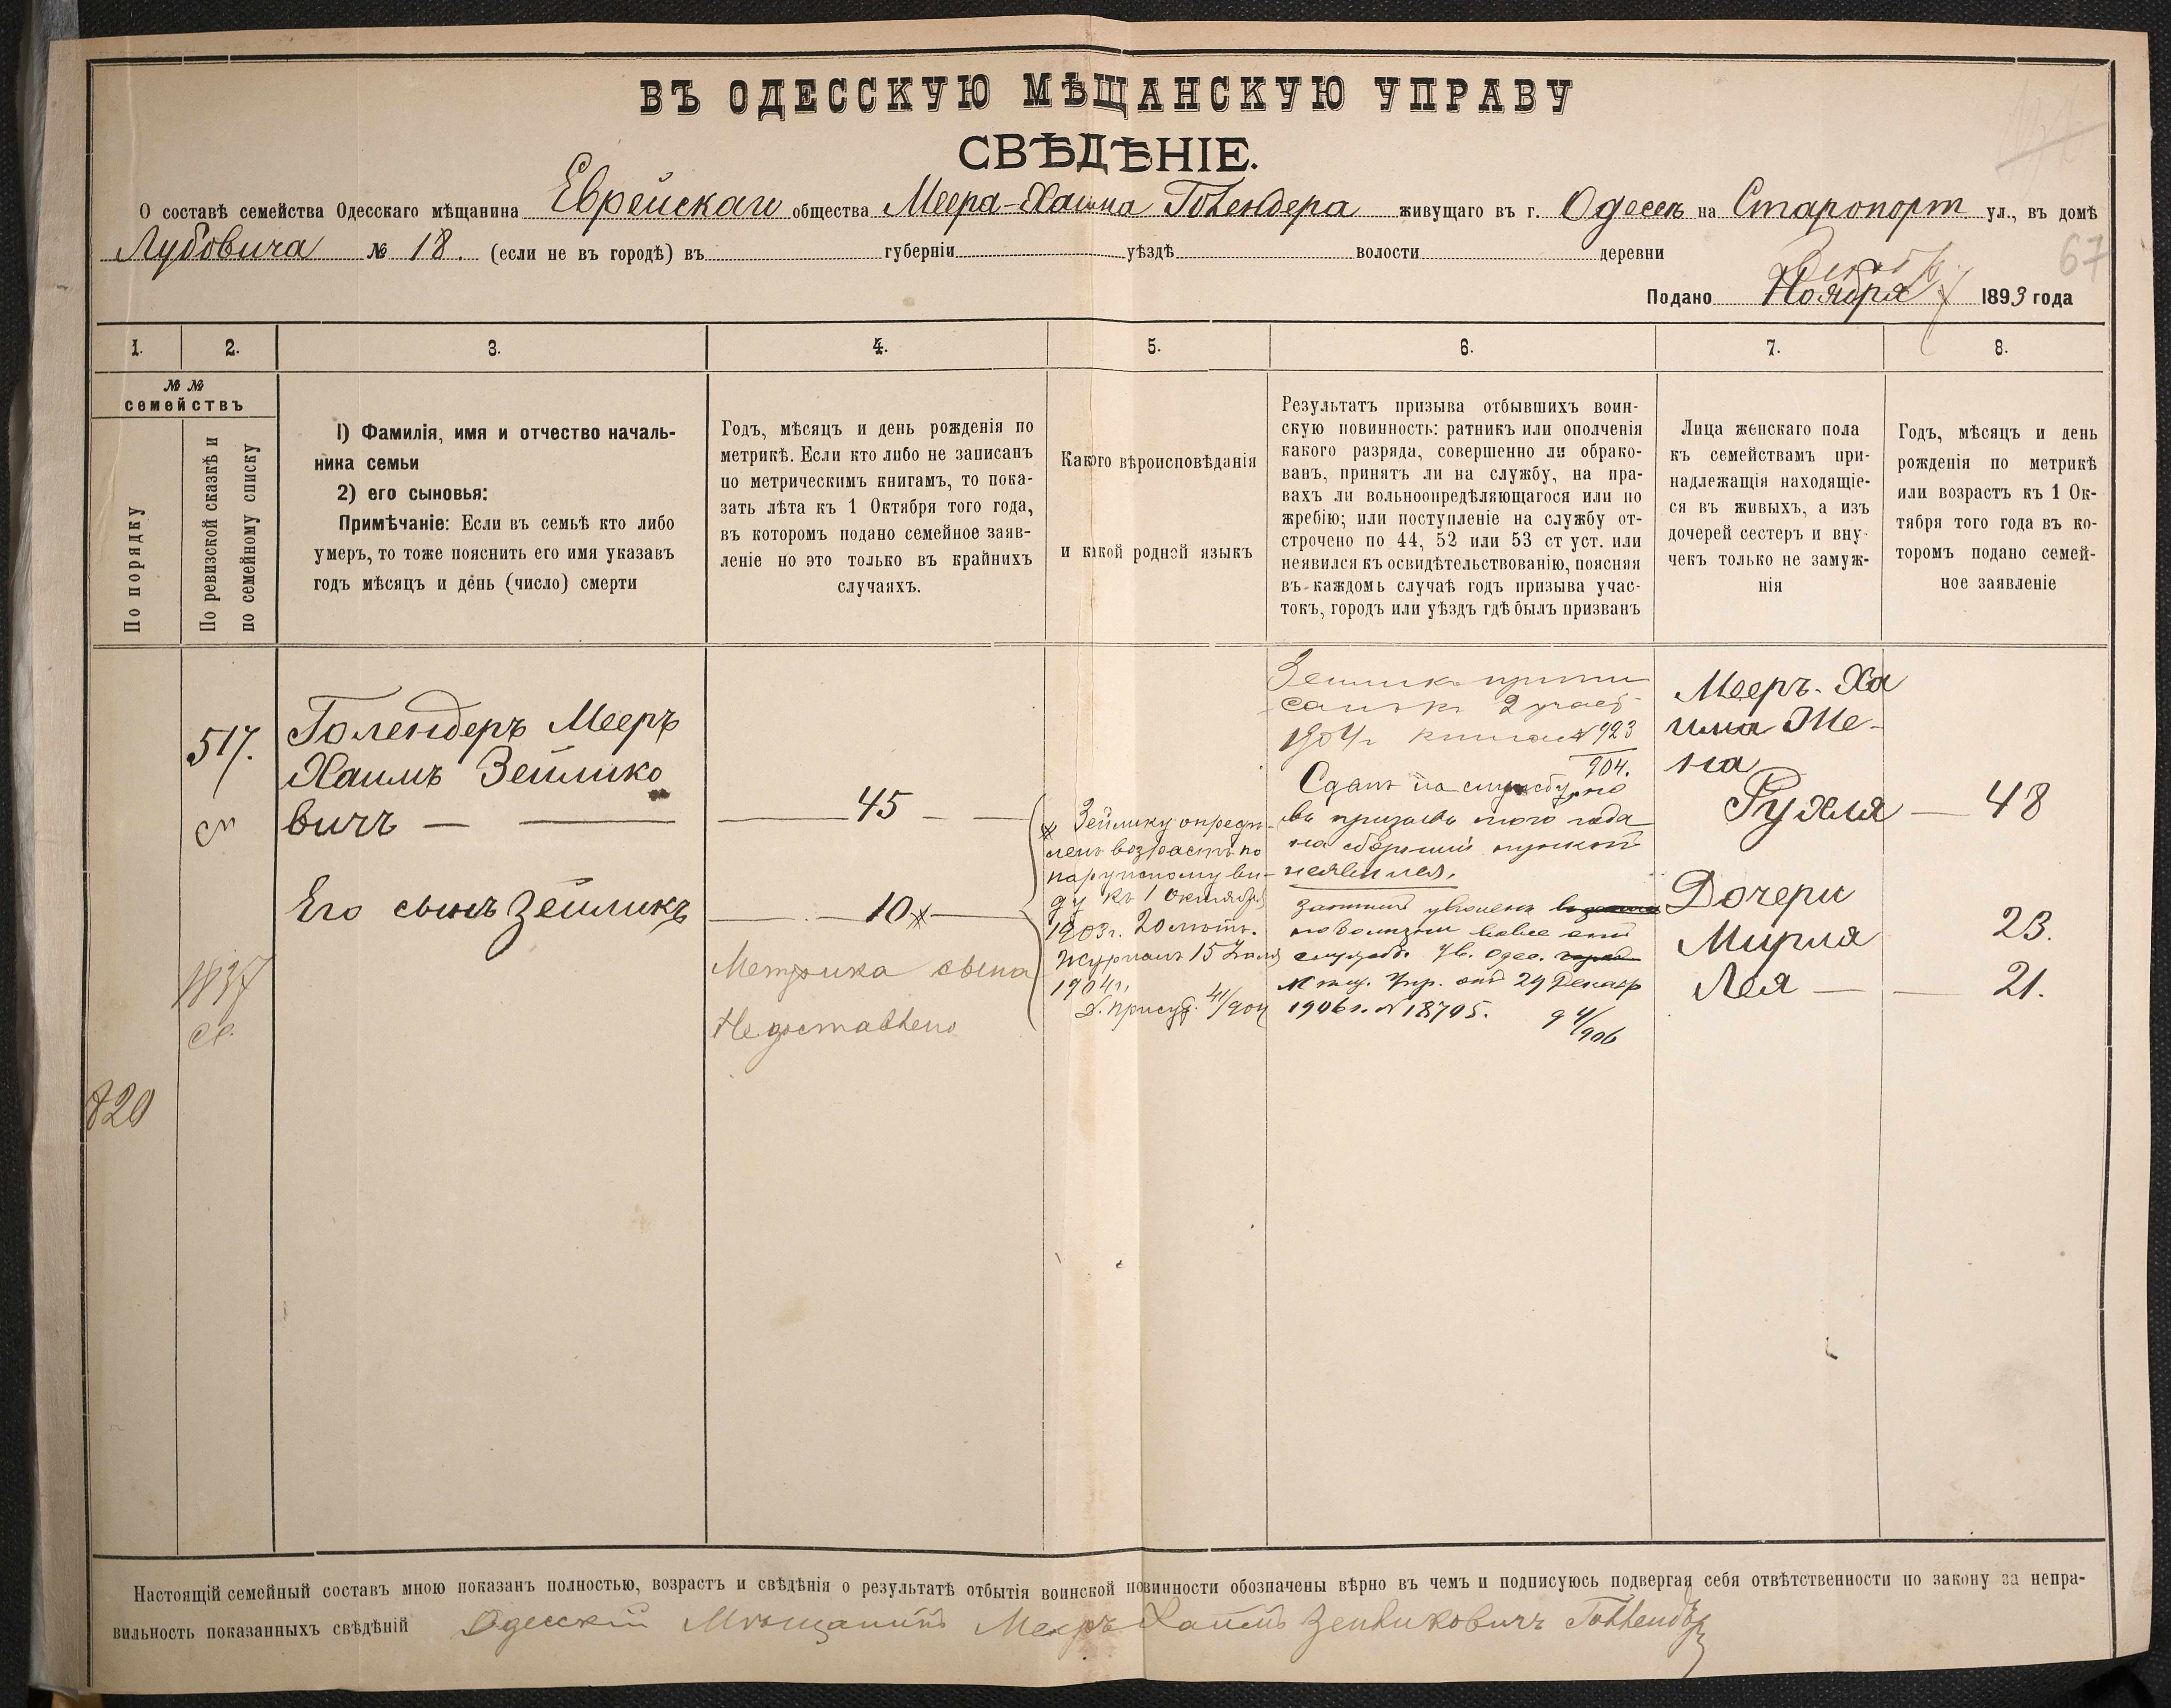 ВЪ ОДЕССКУЮ МѢЩАНСКУЮ УПРАВУ
СВѢДѢНІЕ.
О составѣ семейства Одесскаго мѣщанина Еврейскаго общества Меера-Хаима Голендера живущаго въ г. Одессѣ на Старопорт ул., въ домѣ
Лубовича № 18. (если не въ городѣ) въ губерніи уѣздѣ волости деревни
67
Подано Ноября 1893 года
1. 2. 3. 4. 5. 6. 7. 8.
№ №
семействъ
По порядку
По ревизской сказкѣ и
по семейному списку
1) Фамилія, имя и отчество началь-
ника семьи
2) его сыновья:
Примѣчаніе: Если въ семьѣ кто либо
умеръ, то тоже пояснить его имя указавъ
годъ мѣсяцъ и день (число) смерти
Годъ, мѣсяцъ и день рожденія по
метрикѣ. Если кто либо не записанъ
по метрическимъ книгамъ, то пока-
зать лѣта къ 1 Октября того года,
въ которомъ подано семейное заяв-
леніе но это только въ крайнихъ
случаяхъ.
Какого вѣроисповѣданія
и какой родной языкъ
Результатъ призыва отбывшихъ воин-
скую повинность: ратникъ или ополченія
какого разряда, совершенно ли обрако-
ванъ, принятъ ли на службу, на пра-
вахъ ли вольноопредѣляющагося или по
жребію; или поступленіе на службу от-
строчено по 44, 52 или 53 ст уст. или
неявился къ освидѣтельствованію, поясняя
въ каждомъ случаѣ годъ призыва учас-
токъ, городъ или уѣздъ гдѣ былъ призванъ
Лица женскаго пола
къ семействамъ при-
надлежащія находящіе-
ся въ живыхъ, а изъ
дочерей сестеръ и вну-
чекъ только не замуж-
нія
Годъ, мѣсяцъ и день
рожденія по метрикѣ
или возрастъ къ 1 Ок-
тября того года въ ко-
торомъ подано семей-
ное заявленіе
517.
Голендеръ Мееръ
Хаимъ Зейлико
вичъ — 45
Его сынъ Зейликъ 10 ×
Метрика сына
Не доставлено
820
× Зейлику опредѣ-
ленъ возрастъ по
наружному ви-
ду къ 1 октября
1903 г. 20 лѣтъ.
Журналъ 15
1904 г.
Д. присут. 41/904
Зейликъ припи
санъ къ 2 участ
1904 г книга № 923
904.
Сданъ на службу, но
въ призывъ того года
на сборный пунктъ
неявился.
службы. Ув. Одес.
Мѣщ. Упр. отъ 29 Декабр
1906 г. № 18705.
Мееръ-Ха
има Же-
на
Рухля — 48
Дочери
Мирля 23.
Лея — 21.
Настоящій семейный составъ мною показанъ полностью, возрастъ и свѣдѣнія о результатѣ отбытія воинской повинности обозначены вѣрно въ чемъ и подписуюсь подвергая себя отвѣтственности по закону за непра-
вильность показанныхъ свѣдѣній Одесскій Мѣщанинъ Мееръ Хаимъ Зейликовичъ Голлендеръ